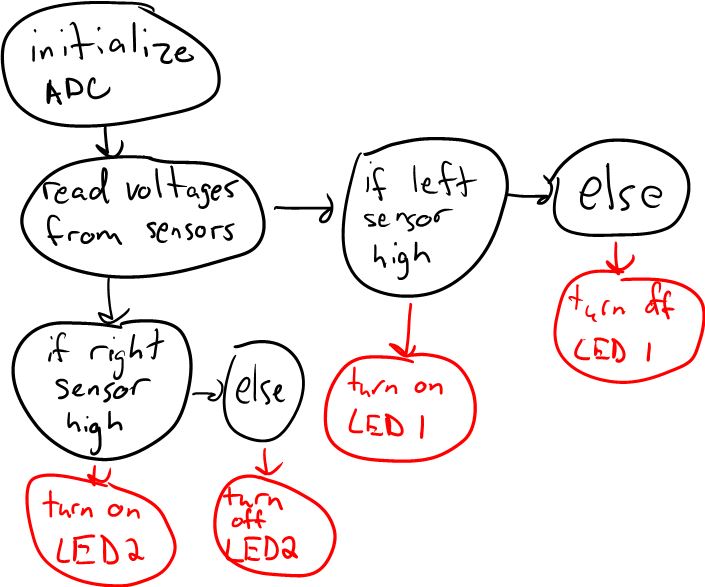 initialize
ADC
read voltages
from sensors
if left
sensor
high
else
turn off
LED 1
turn on
LED 1
if right
sensor
high
else
turn on
LED2
turn
off
LED2